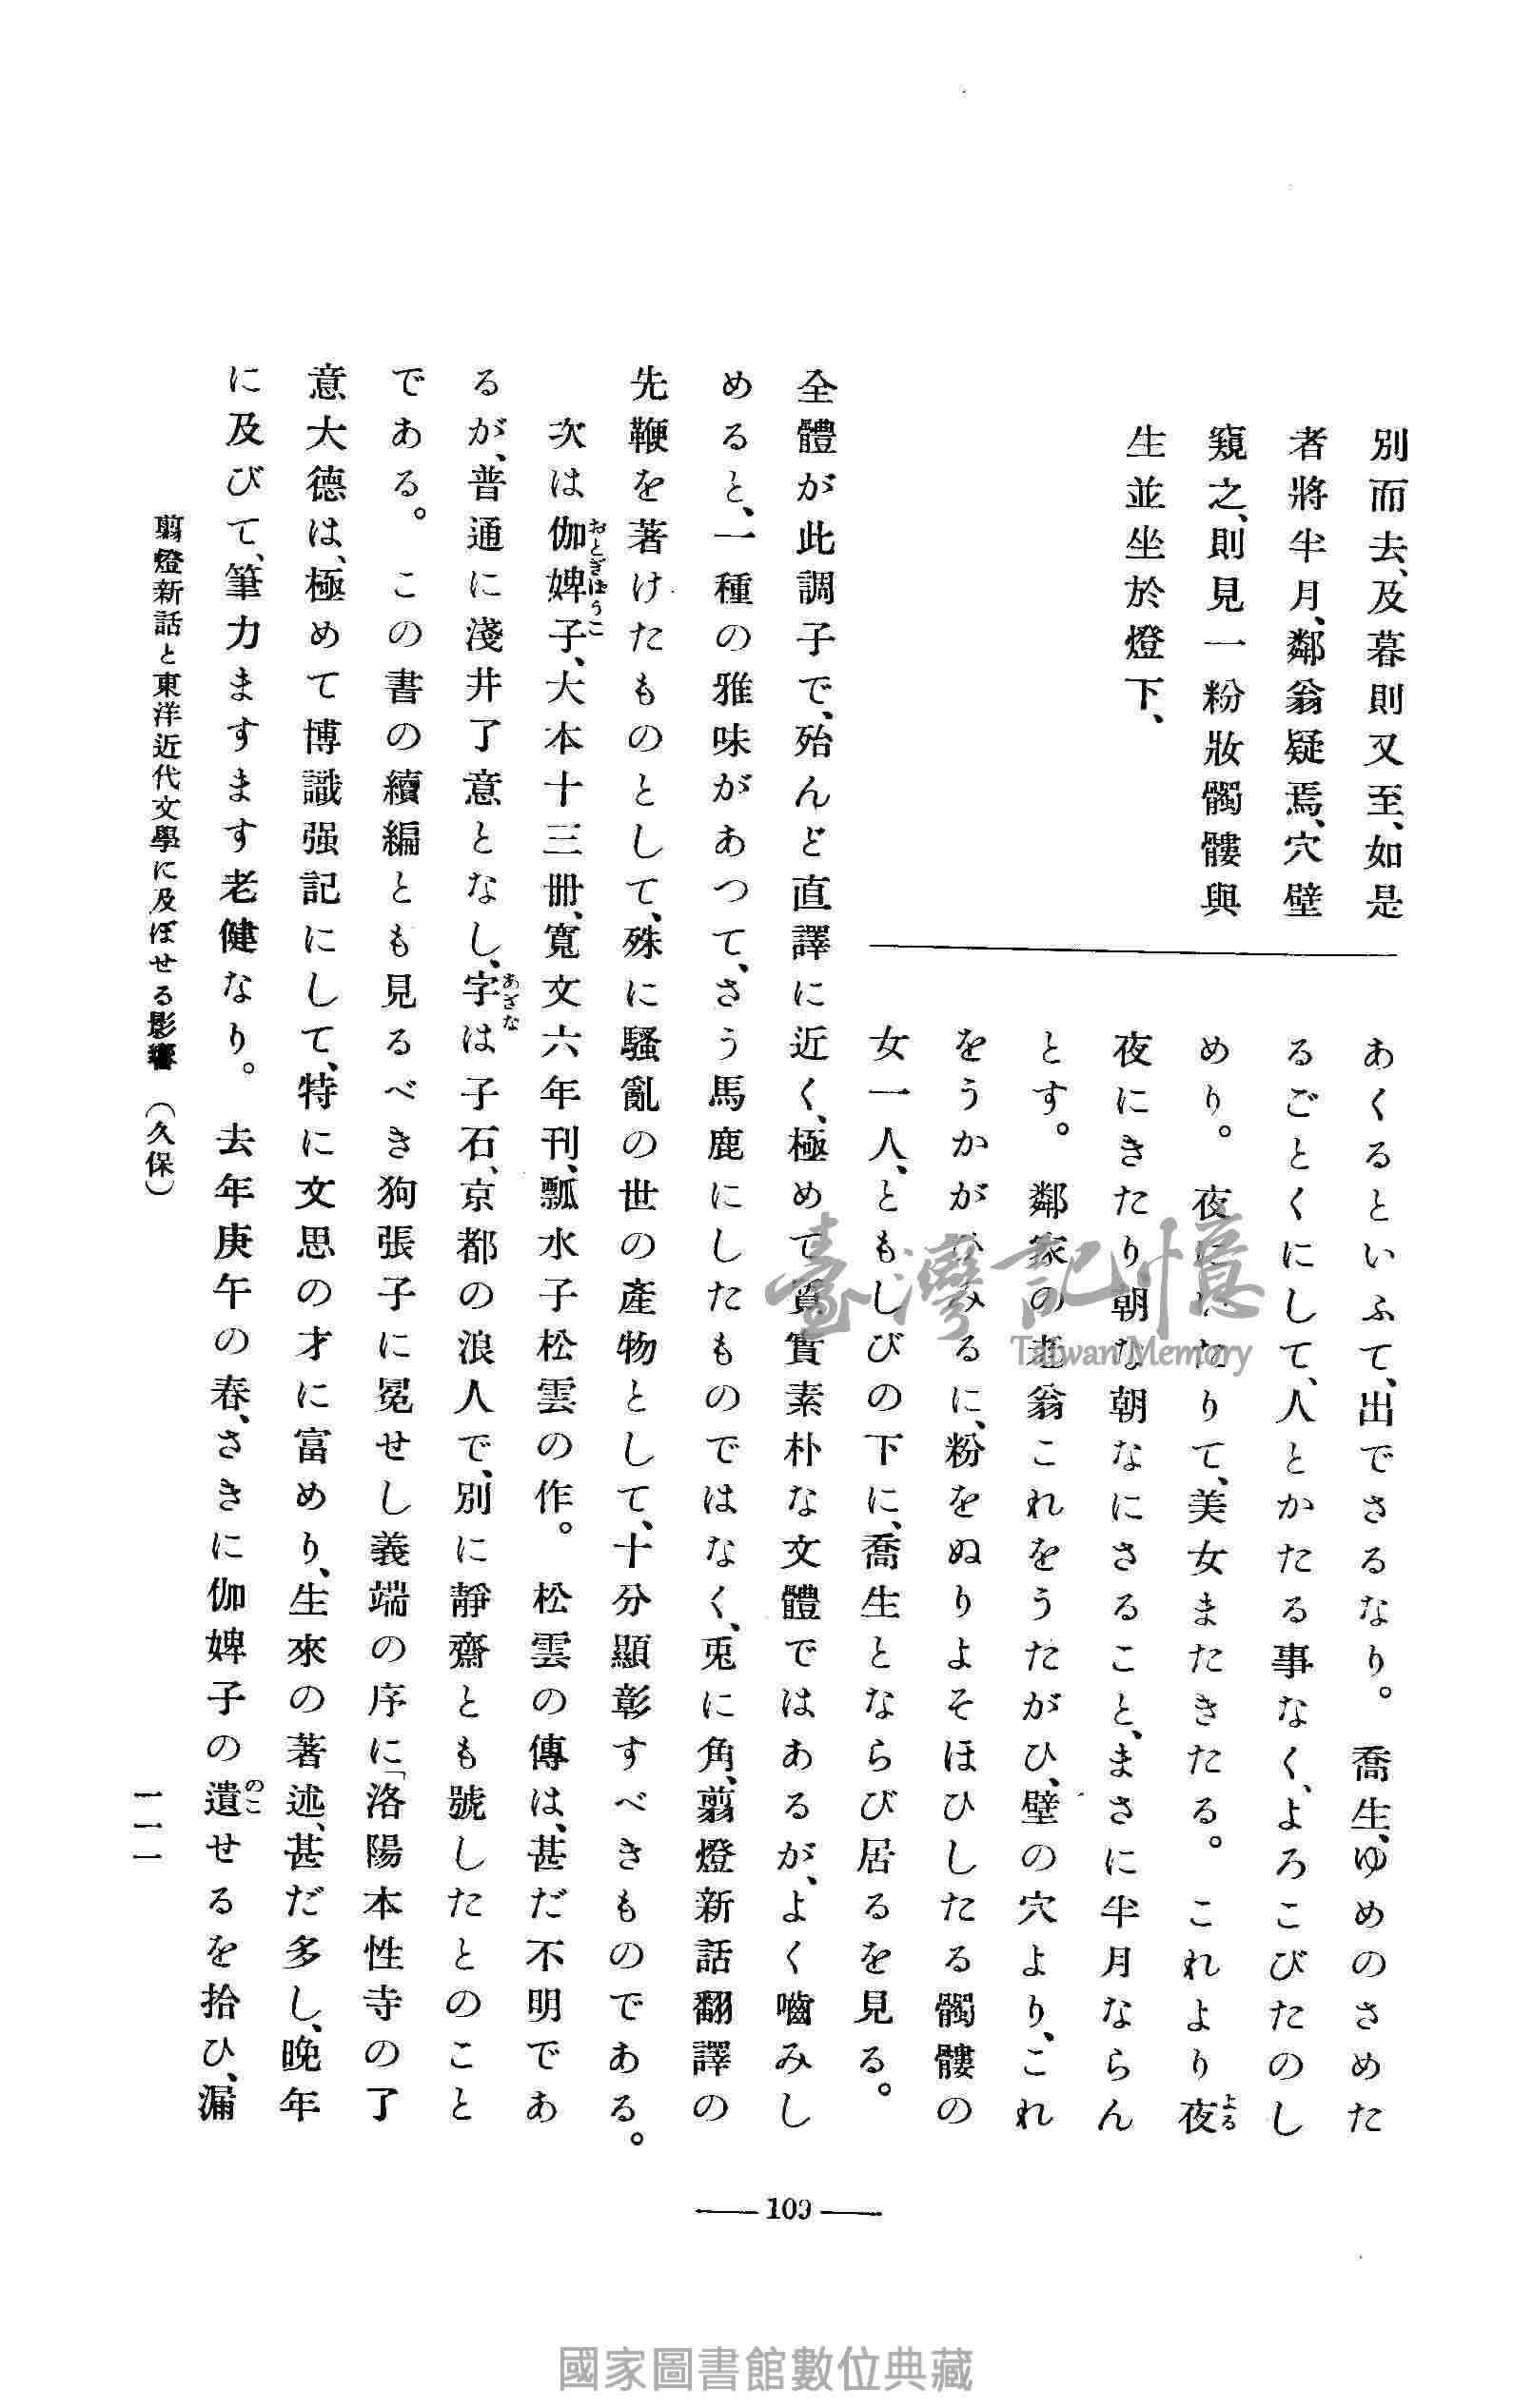 別而去、及暮則又至、如是
者將半月、鄰翁疑焉、穴壁
窺之、則見一粉妝髑髏與
生並坐於燈下、
あくるといふて、出でさるなり。喬生、ゆめのさめた
るごとくにして、人とかたる事なく、よろこびたのし
めり。夜にいたりて、美女またきたる。これより夜
よる
夜にきたり朝な朝なにさること、まさに半月ならん
とす。鄰家の老翁これをうたがひ、壁の穴より、これ
をうかがひみるに、粉をぬりよそほひしたる髑髏の
女一人、ともしびの下に、喬生とならび居るを見る。
全體が此調子で、殆んど直譯に近く、極めて質實素朴な文體ではあるが、よく嚙みし
めると、一種の雅味があつて、さう馬鹿にしたものではなく、兎に角、翦燈新話翻譯の
先鞭を著けたものとして、殊に騷亂の世の產物として、十分顯彰すべきものである。
次は伽婢子、大本十三册、寬文六年刊、瓢水子松雲の作。松雲の傳は、甚だ不明であ
おとぎばうこ
るが、普通に淺井了意となし、字は子石、京都の浪人で、別に靜齋とも號したとのこと
あざな
である。この書の續編とも見るべき狗張子に冕せし義端の序に「洛陽本性寺の了
意大德は、極めて博識强記にして、特に文思の才に富めり、生來の著述、甚だ多し、晚年
に及びて、筆力ますます老健なり。去年庚午の春、さきに伽婢子の遺せるを拾ひ、漏
のこ
翦燈新話と東洋近代文學に及ぼせる影響（久保）
一一一
109
臺灣記憶
Taiwan Memory
國家圖書館數位典藏